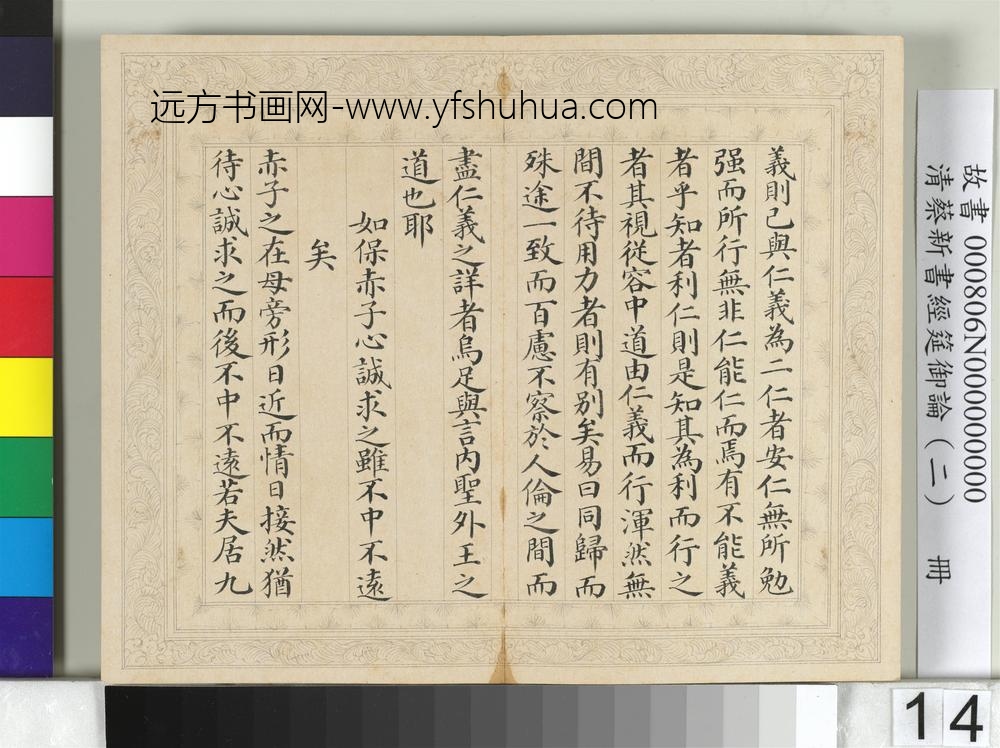 远方书画网-www.yfshuhua.com
義則已與仁義為二仁者安仁無所勉
强而所行無非仁能仁而焉有不能義
者乎知者利仁則是知其為利而行之
者其視從容中道由仁義而行渾然無
間不待用力者則有别矣易曰同歸而
殊途一致而百慮不察於人倫之間而
盡仁義之詳者烏足與言内聖外王之
道也耶
如保赤子心誠求之雖不中不遠
矣
赤子之在母旁形日近而情日接然猶
待心誠求之而後不中不遠若夫居九
故書 000806N000000000
清蔡新書經筵御論（二） 冊
14